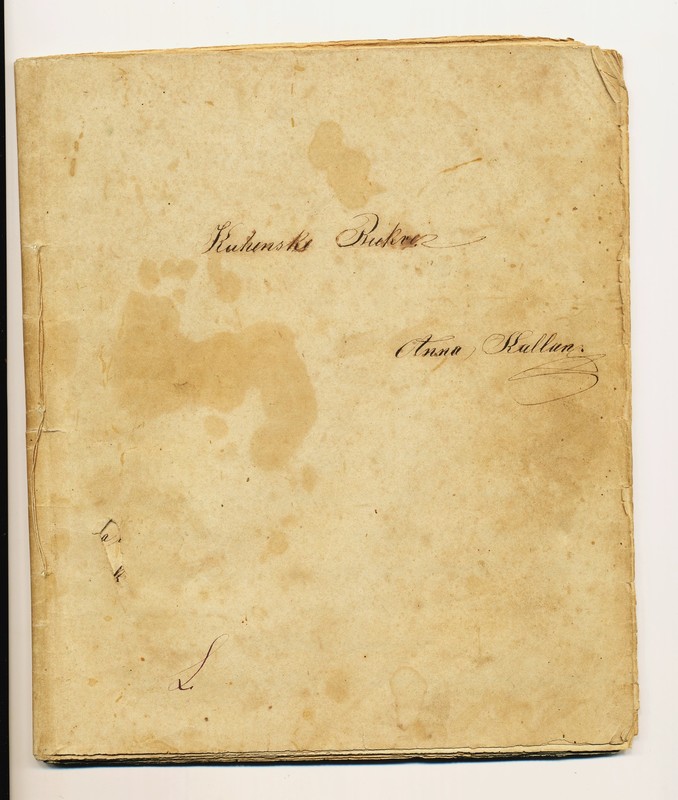 Kuhenske Bukve
Anna Kallan.
L